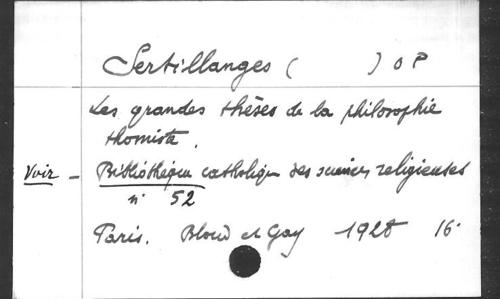 Sertillanges ( ) O P
Les grandes thèses de la philosophie
thomiste.
Voir - Bibliothèque catholique des sciences religieuses
n° 52
Paris. Bloud et Gay 1928 16°